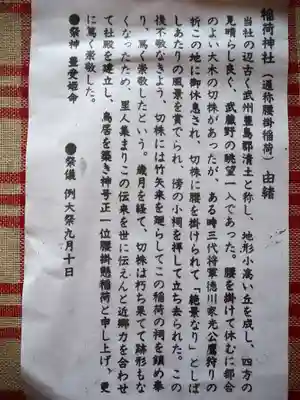 稲荷神社(通称腰掛稲荷)由緒
当社の辺古く武州豊島郡清土と称し、地形小高い丘を成し、四方の
見晴らし良く、武蔵野の眺望一入であった。腰を掛けて休むに都合
のよい大木の切株があったが、ある時三代将軍徳川家光公鷹狩りの
折この地に御休息され、切株に腰を掛けられて「絶景なり」としば
しあたりの風景を賞でられ、傍の小祠を拝して立ち去られた。この
後不敬なきよう、切株には竹矢来を廻らしてこの稲荷の祠を鎮め奉
り、篤く崇敬したという。歳月を経て、切株は朽ち果てて跡形もな
くなったため、里人集まりこの伝来を世に伝えんと近郷力を合わせ
て社殿を建立し、鳥居を築き神号正一位腰掛懸稲荷と申し上げ、更
に篤く崇敬した。
●祭神 豊受姫命 ●祭儀 例大祭九月十日